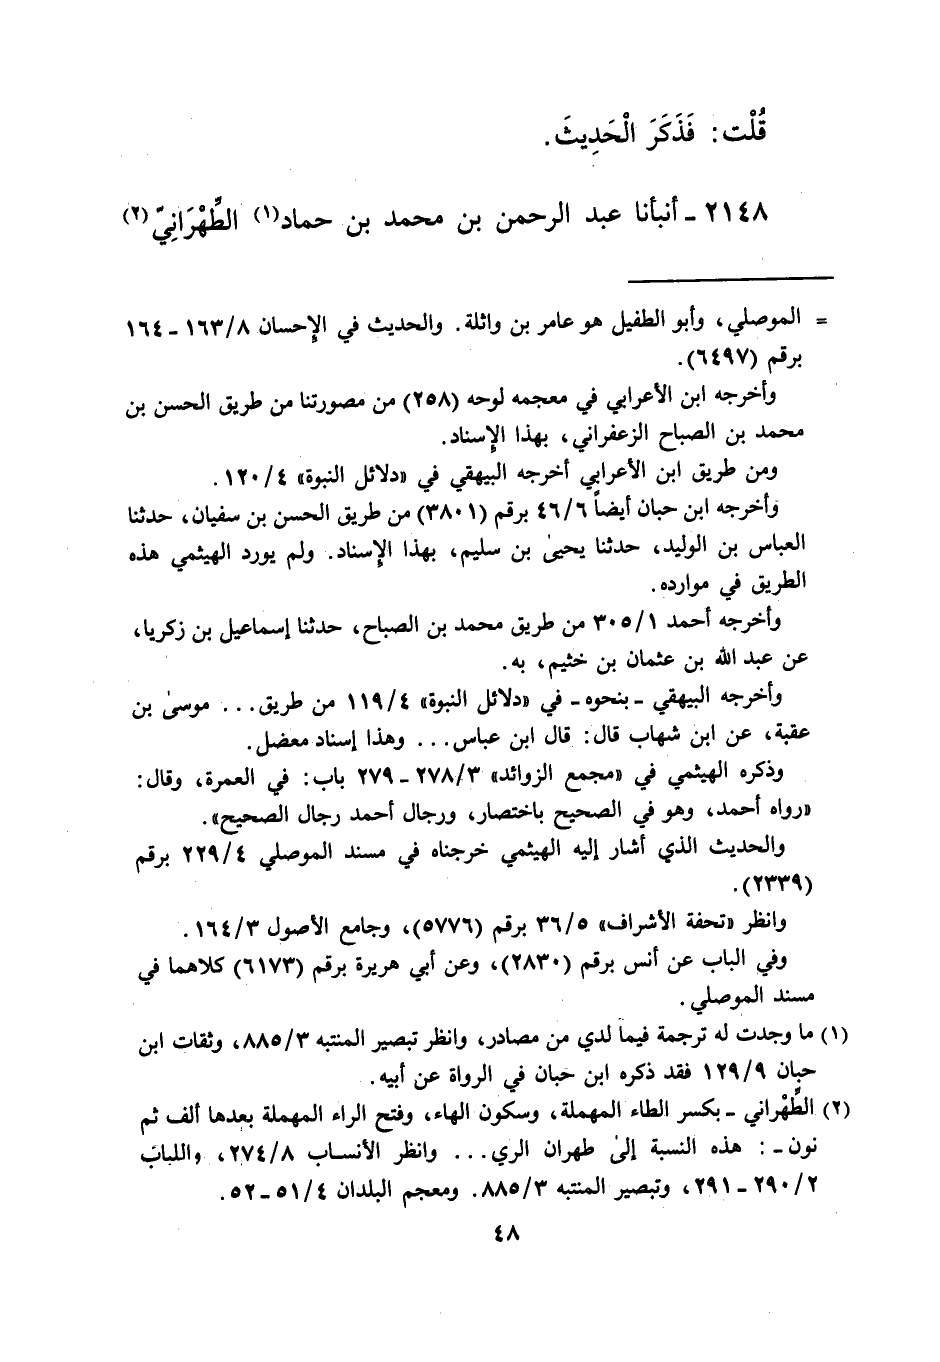 قُلْت: فَذَكَرَ الْحَدِيثَ.
٢١٤٨ ـ أنبأنا عبد الرحمن بن محمد بن حماد(١) الطِّهْرَانِيّ(٢)
= الموصلي، وأبو الطفيل هو عامر بن واثلة. والحديث في الإحسان ١٦٣/٨ ـ ١٦٤
برقم (٦٤٩٧).
وأخرجه ابن الأعرابي في معجمه لوحه (٢٥٨) من مصورتنا من طريق الحسن بن
محمد بن الصباح الزعفراني، بهذا الإسناد.
ومن طريق ابن الأعرابي أخرجه البيهقي في «دلائل النبوة» ١٢٠/٤.
وأخرجه ابن حبان أيضاً ٤٦/٦ برقم (٣٨٠١) من طريق الحسن بن سفيان، حدثنا
العباس بن الوليد، حدثنا يحيىٰ بن سليم، بهذا الإسناد. ولم يورد الهيثمي هذه
الطريق في موارده.
وأخرجه أحمد ٣٠٥/١ من طريق محمد بن الصباح، حدثنا إسماعيل بن زكريا،
عن عبد الله بن عثمان بن خثيم، به.
وأخرجه البيهقي ـ بنحوه ـ في «دلائل النبوة» ١١٩/٤ من طريق... موسىٰ بن
عقبة، عن ابن شهاب قال: قال ابن عباس... وهذا إسناد معضل.
وذكره الهيثمي في «مجمع الزوائد» ٢٧٨/٣ ـ ٢٧٩ باب: في العمرة، وقال:
«رواه أحمد، وهو في الصحيح باختصار، ورجال أحمد رجال الصحيح».
والحديث الذي أشار إليه الهيثمي خرجناه في مسند الموصلي ٢٢٩/٤ برقم
(٢٣٣٩).
وانظر «تحفة الأشراف» ٣٦/٥ برقم (٥٧٧٦)، وجامع الأصول ١٦٤/٣.
وفي الباب عن أنس برقم (٢٨٣٠)، وعن أبي هريرة برقم (٦١٧٣) كلاهما في
مسند الموصلي.
(١) ما وجدت له ترجمة فيما لدي من مصادر، وانظر تبصير المنتبه ٨٨٥/٣، وثقات ابن
حبان ١٢٩/٩ فقد ذكره ابن حبان في الرواة عن أبيه.
(٢) الطِّهْراني ـ بكسر الطاء المهملة، وسكون الهاء، وفتح الراء المهملة بعدها ألف ثم
نون ـ: هذه النسبة إلىٰ طهران الري... وانظر الأنساب ٢٧٤/٨، واللباب
٢٩٠/٢ ـ ٢٩١، وتبصير المنتبه ٨٨٥/٣. ومعجم البلدان ٥١/٤ ـ ٥٢.
٤٨